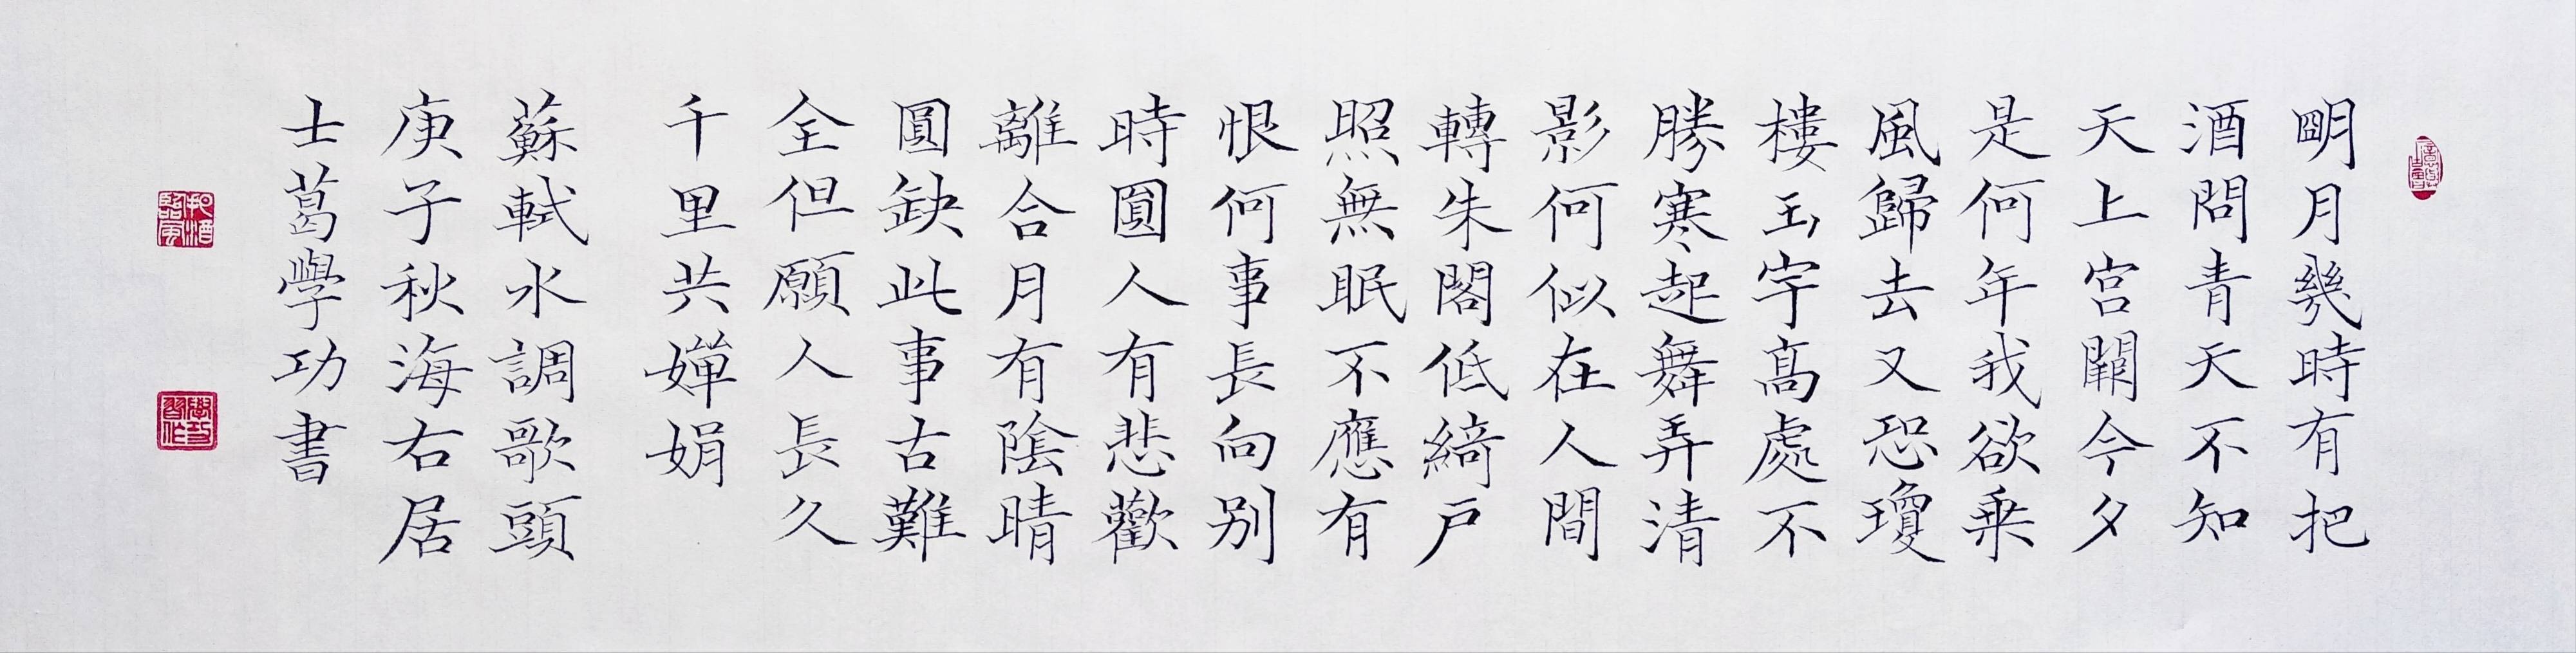 明月幾時有把
酒問青天不知
天上宮闕今夕
是何年我欲乗
風歸去又恐瓊
樓玉宇髙處不
勝寒起舞弄清
影何似在人間
轉朱閣低綺戶
照無眠不應有
恨何事長向别
時圓人有悲歡
離合月有陰晴
圓缺此事古難
全但願人長久
千里共嬋娟
蘇軾水調歌頭
庚子秋海右居
士葛學功書
把酒臨風